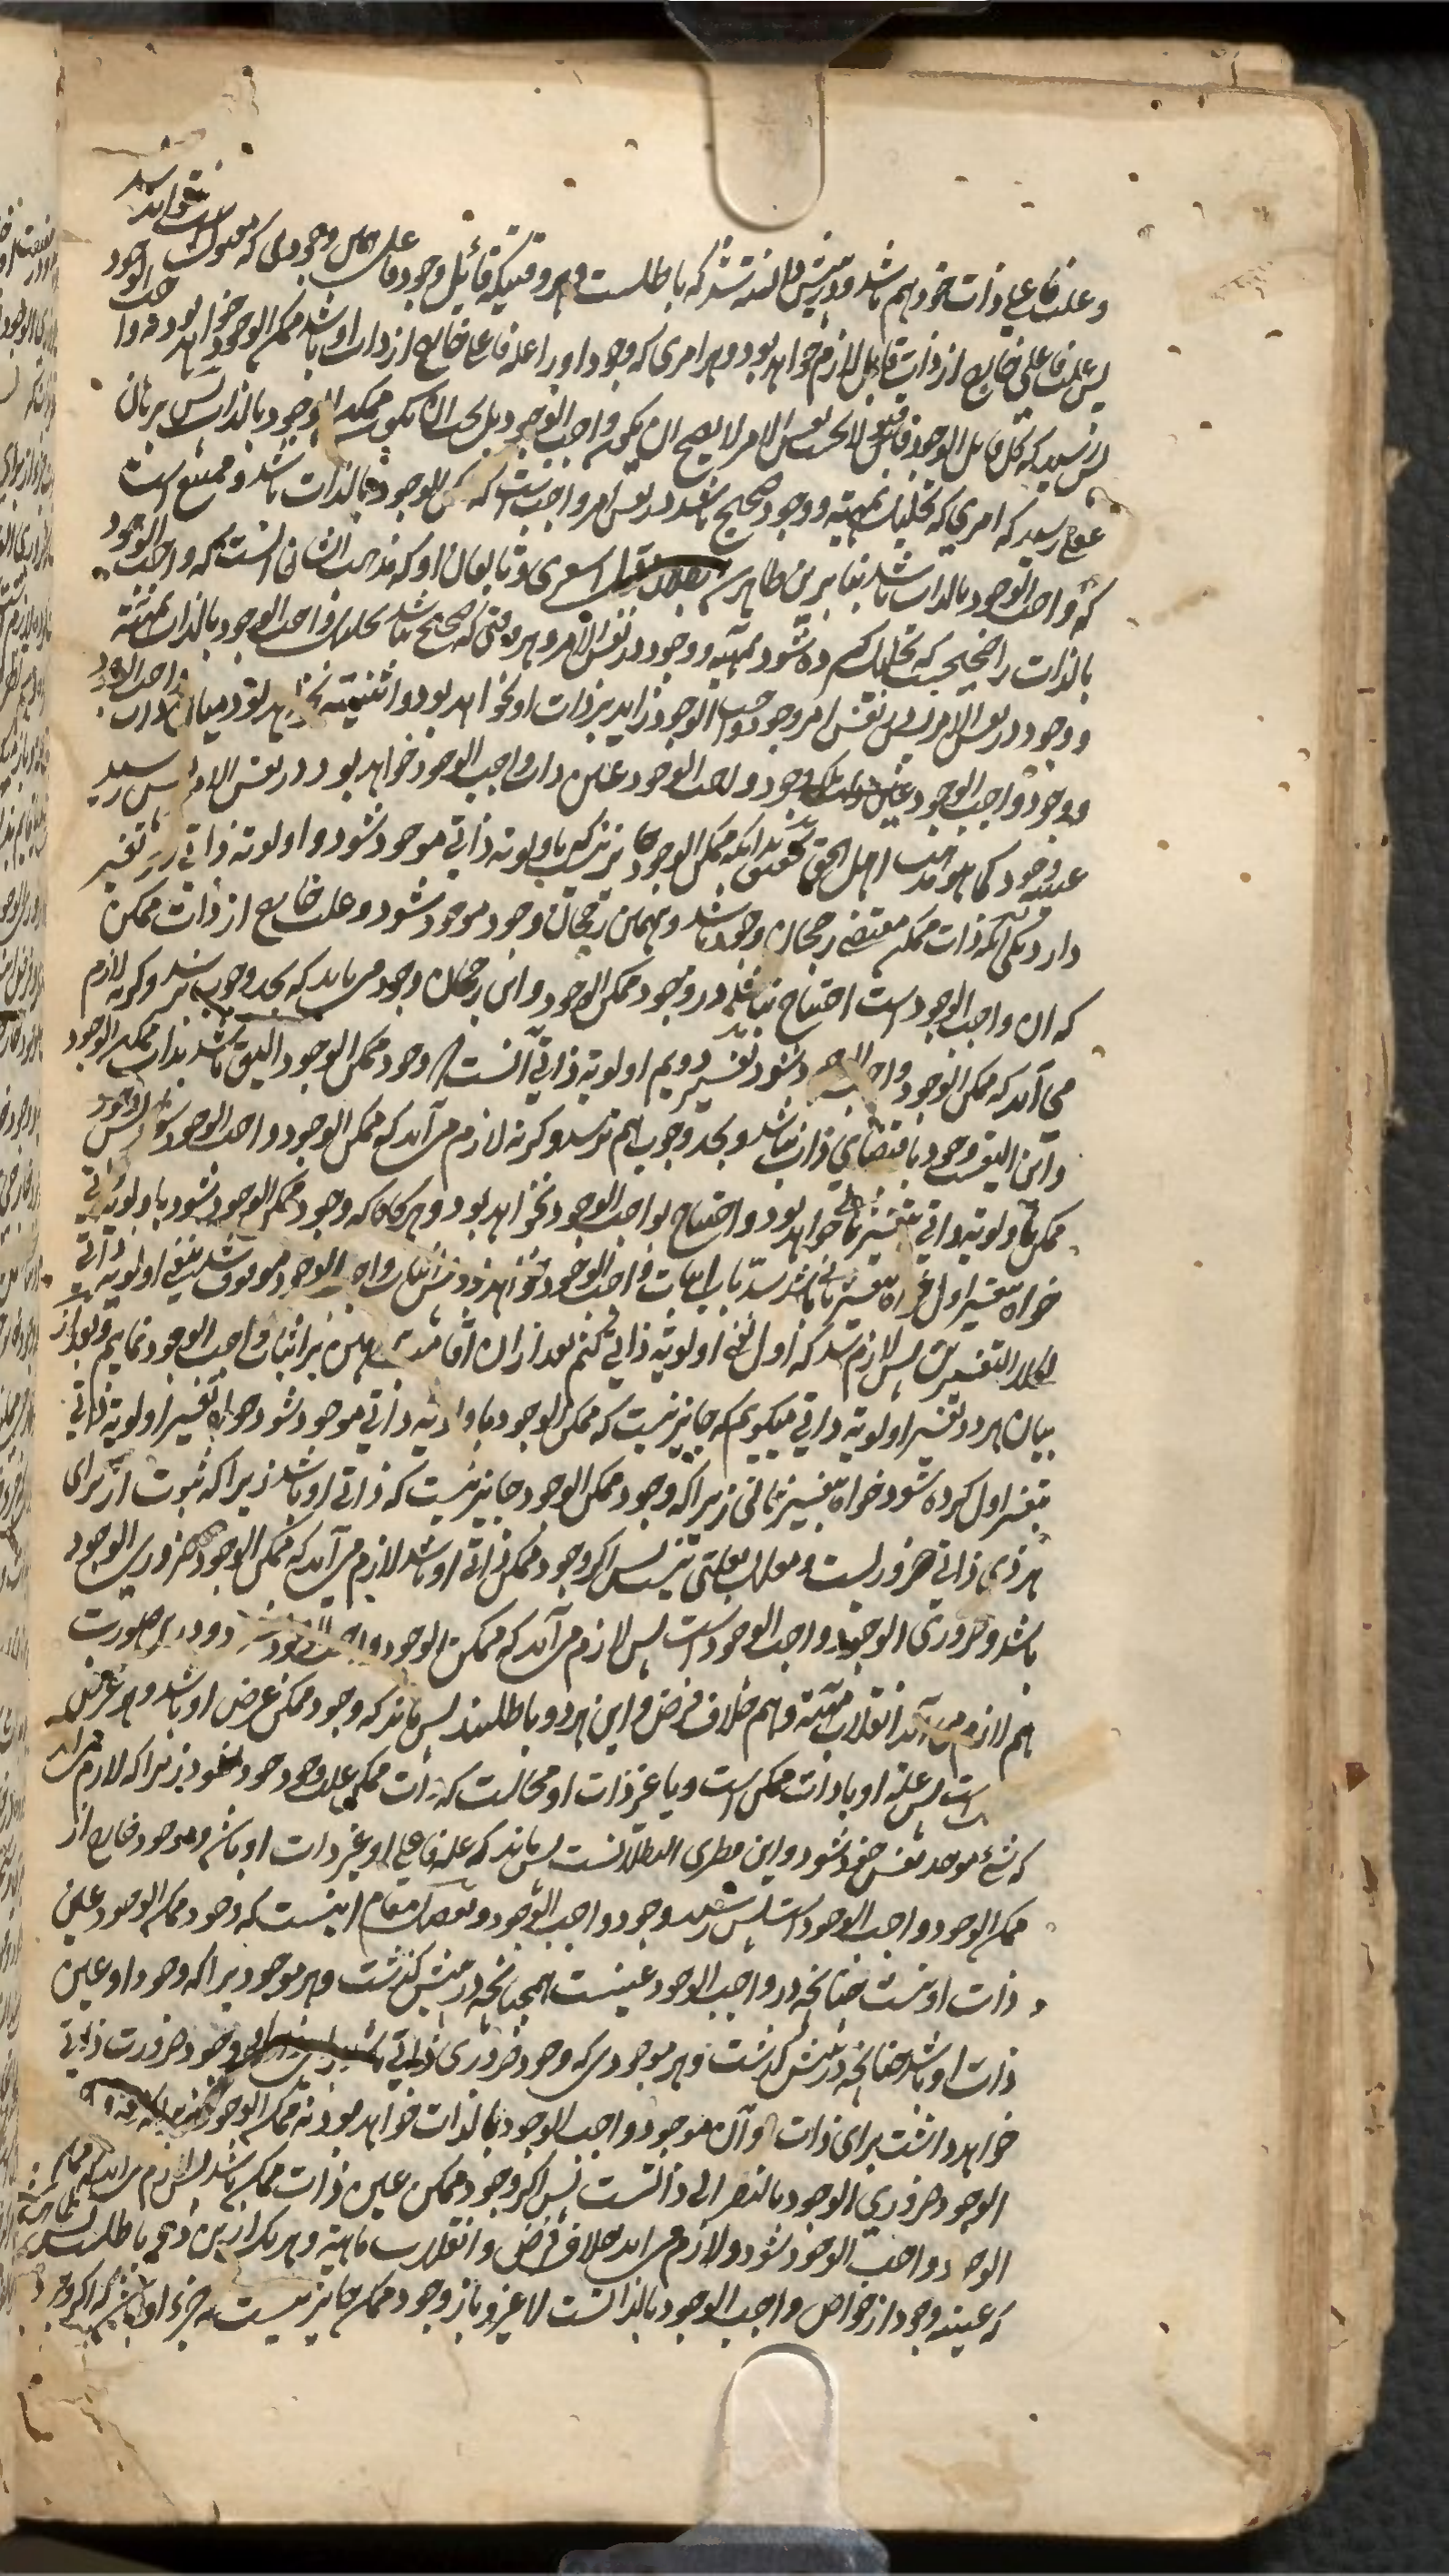 و علت فاعلی ذات خود هم باشد و در پیش دانسته شد که باطلست و هر وقتیکه قائل وجود فاعلی
پس علت فاعلی خارج از ذات قابل لازم خواهد بود و هر امری که وجود او را علة فاعلی خارج از ذات او باشد ممکن الوجود خواهد بود نه واجب الوجود
پس رسید که کل قابل الوجود فی نفس الامر لا یصح ان یکون واجب الوجود بل یجب ان یکون ممکن الوجود بالذات پس برهان
رسید که امری که تحلیل بمهیة و وجود صحیح باشد در نفس امر واجب است که ممکن الوجود بالذات باشد و ممتنع است
که واجب الوجود بالذات باشد بنابرین ظاهر شد بطلان قول اشعری و تابعان او که مذهب ایشان انست که واجب الوجود
بالذات را صحیحست که تحلیل کرده شود بمهیة و وجود در نفس الامر و هر وقتی که صحیح نباشد تحلیل واجب الوجود بالذات بمهیة
و وجود در نفس الامر پس در نفس امر وجود واجب الوجود زاید بر ذات او نخواهد بود و اثنینیة نخواهد بود میان ذات واجب الوجود
و وجود واجب الوجود بلکه وجود واجب الوجود عین ذات واجب الوجود خواهد بود در نفس الامر پس رسید
عینیة وجود کما هو مذهب اهل الحق بدانکه ممکن الوجود جایز نیست که باولویة ذاتی موجود شود و اولویة ذاتی دو تفسیر
دارد یکی آنکه ذات ممکن مقتضی رجحان وجود باشد و بهمین رجحان وجود موجود شود و علت خارج از ذات ممکن
که ان واجب الوجود است احتیاج نباشد در وجود ممکن الوجود و این رجحان وجود می باید که بحد وجوب نرسد و کرنه لازم
می آید که ممکن الوجود واجب الوجود شود تفسیر دویم اولویة ذاتی آنست که وجود ممکن الوجود الیق باشد بذات ممکن الوجود
و این الیقیت وجود باقتضای ذات نباشد و بحد وجوب هم نرسد و کرنه لازم می آید که ممکن الوجود واجب الوجود شود پس وجود
ممکن باولویة ذاتی بتفسیر ثانی خواهد بود و احتیاج بواجب الوجود نخواهد بود و هرکاه که وجود ممکن الوجود شود باولویة ذاتی
خواه بتفسیر اول خواه بتفسیر ثانی باشد سد باب اثبات واجب الوجود خواهد بود پس اثبات واجب الوجود موقوف باشد بنفی اولویة ذاتی
بکلا التفسیرین پس لازم شد که اول نفی اولویة ذاتی کنم بعد از ان اقامت براهین بر اثبات واجب الوجود نمایم و بعد از
بیان هر دو تفسیر اولویة ذاتی میکویم که جایز نیست که ممکن الوجود باولویة ذاتی موجود شود خواه تفسیر اولویة ذاتی
بتفسیر اول کرده شود خواه بتفسیر ثانی زیراکه وجود ممکن الوجود جایز نیست که ذاتی او باشد زیرا که ثبوت از برای
هر ذی ذاتی ضروریست و معلل بعلتی نیست پس اکر وجود ممکن ذاتی او باشد لازم می آید که ممکن الوجود ضروری الوجود
باشد و ضروری الوجود واجب الوجود است پس لازم می آید که ممکن الوجود واجب الوجود شود و درین صورت
هم لازم می آید انقلاب مهیة و هم خلاف فرض و این هر دو باطلند پس ماند که وجود ممکن عرض او باشد و هر عرض
است پس علة او یا ذات ممکن است و یا غیر ذات او محالست که ذات ممکن علت وجود خود شود زیراکه لازم می اید
که شئ موجد نفس خود شود و این فطری البطلانست پس ماند که علة فاعلی او غیر ذات او باشد و موجود خارج از
ممکن الوجود واجب الوجود است پس رسید وجود واجب الوجود و تفصیل مقام اینست که وجود ممکن الوجود عین
ذات او نیست چنانچه در واجب الوجود عینست همچنانچه در پیش کذشت و هر موجودیرا که وجود او عین
ذات او باشد چنانچه در پیش کذشت و هر موجودی که وجود ضروری ذاتی وجود ضرورت ذاتی
خواهد داشت برای ذات او آن موجود واجب الوجود بالذات خواهد بود نه ممکن الوجود
الوجود ضروری الوجود بالنظر الی ذاتست پس اکر وجود ممکن عین ذات ممکن باشد لازم می آید که ممکن
الوجود واجب الوجود شود و لازم می اید خلاف فرض و انقلاب ماهیة و هر یک ازین دو باطلست پس
که عینیة وجود از خواص واجب الوجود بالذاتست لا غیر و نیز وجود ممکن جایز نیست که جزء او باشد که اکر